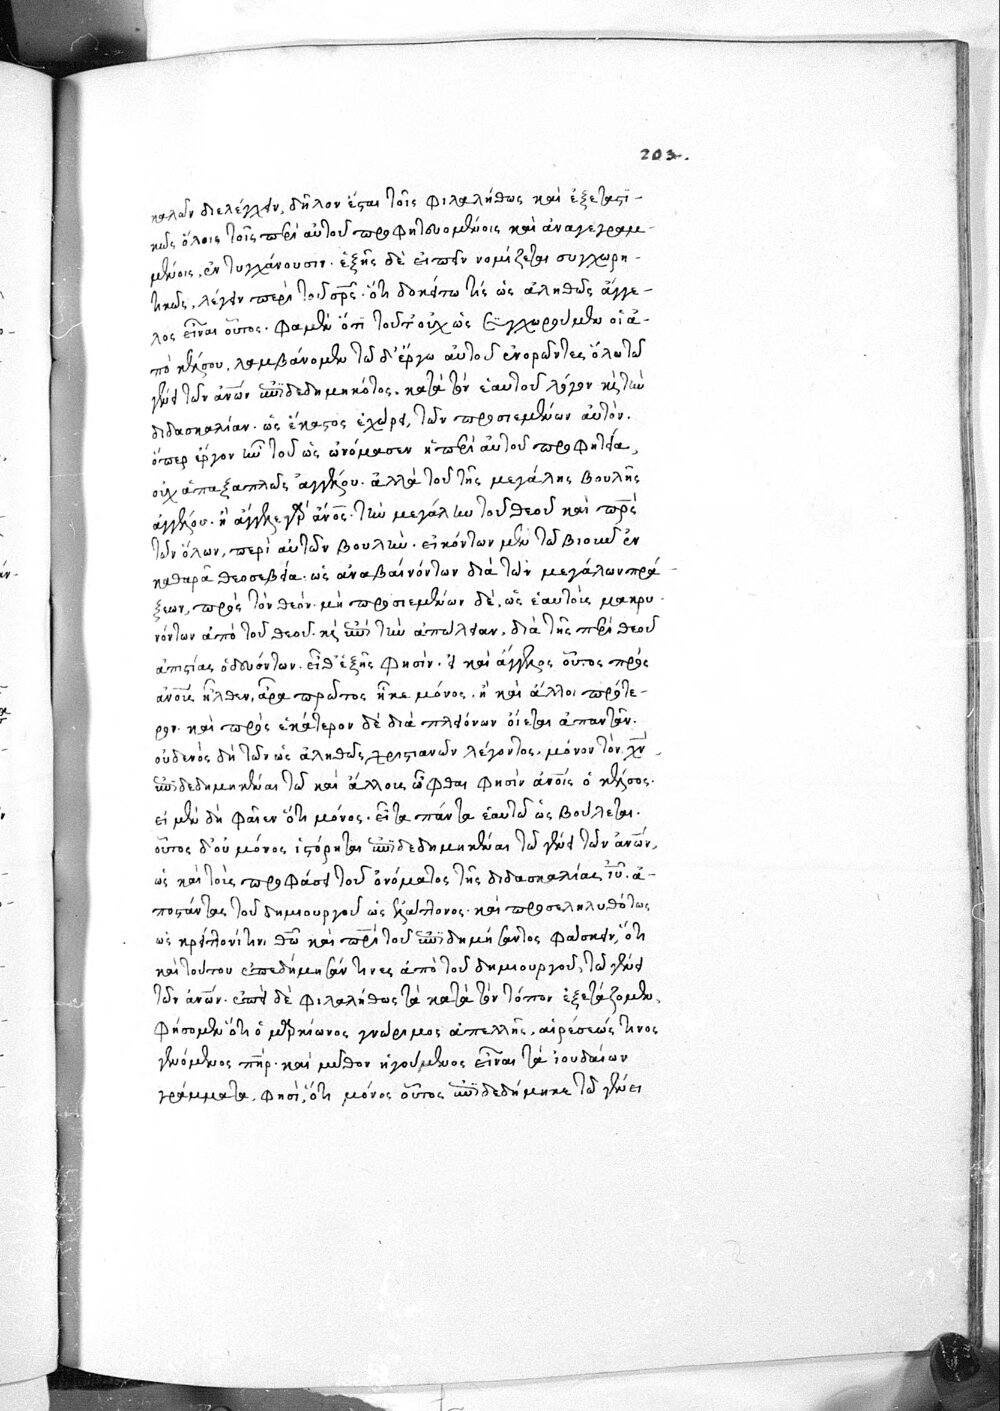 203.
καλῶν διελέγχειν, δῆλον ἔσται τοῖς φιλαλήθως καὶ ἐξεταστι-
κῶς ὅλοις τοῖς περὶ αὐτοῦ προφητευομένοις καὶ ἀναγεγραμ-
μένοις, ἐντυγχάνουσιν. ἑξῆς δὲ εἰπεῖν νομίζεται συγχωρη-
τικῶς, λέγειν περὶ τοῦ σρ̅ς· ὅτι δοκείτω τίς ὡς ἀληθῶς ἄγγε-
λος εἶναι οὗτος. φαμὲν ὅτι τοῦτ' οὐχ ὡς συγχωρούμενοι ἀ-
πὸ κέλσου, λαμβάνομεν τῷ δ' ἔργῳ αὐτοῦ ἐνορῶντες ὅλῳ τῷ
γένει τῶν ἀν̅ων ἐπιδεδημηκότος. κατὰ τὸν ἑαυτοῦ λόγον κὶ τὴν
διδασκαλίαν. ὡς ἕκαστος ἐχώρει, τῶν προσιεμένων αὐτόν.
ὅπερ ἔργον ἦν τοῦ ὡς ὠνόμασεν ἡ περὶ αὐτοῦ προφητεία,
οὐχ ἁπαξαπλῶς ἀγγέλου. ἀλλὰ τοῦ τῆς μεγάλης βουλῆς
ἀγγέλου. ἤγγελλε γὰρ ἀν̅οις. τὴν μεγάλην τοῦ θεοῦ καὶ πρ̅ς
τῶν ὅλων, περὶ αὐτῶν βουλὴν. εἰκόντων μὲν τῷ βιοῦν ἐν
καθαρᾷ θεοσεβείᾳ. ὡς ἀναβαινόντων διὰ τῶν μεγάλων πρά-
ξεων, πρὸς τὸν θεόν. μὴ προσιεμένων δὲ, ὡς ἑαυτοὺς μακρυ-
νόντων ἀπὸ τοῦ θεοῦ. κὶ ἐπὶ τὴν ἀπώλειαν, διὰ τῆς περὶ θεοῦ
ἀπιστίας ὁδευόντων. εἶθ' ἑξῆς φησὶν. εἰ καὶ ἄγγελος οὗτος πρὸς
ἀν̅ους ἦλθεν, ἆρα πρῶτος ἧκε μόνος. ἢ καὶ ἄλλοι πρότε-
ρον. καὶ πρὸς ἑκάτερον δὲ διὰ πλειόνων οἴεται ἀπαντᾶν.
οὐδενὸς δὴ τῶν ὡς ἀληθῶς χριστιανῶν λέγοντος. μόνον τὸν χ̅ν
ἐπιδεδημηκέναι τῷ καὶ ἄλλοις ὦφθαι φησὶν ἀν̅οις ὁ κέλσος.
εἰ μὲν δὴ φαῖεν ὅτι μόνος. εἶτα πάντα ἑαυτῷ ὡς βούλεται.
οὗτος δ' οὐ μόνος ἱστόρηται ἐπιδεδημηκέναι τῷ γένει τῶν ἀν̅ων,
ὡς καὶ τοὺς προφάσει τοῦ ὀνόματος τῆς διδασκαλίας ἰ̅υ. ἀ-
ποστάντας τοῦ δημιουργοῦ ὡς ἐλάττονος. καὶ προσεληλυθότας
ὡς κρείττονί τινι θῶ καὶ πρ̅ὶ τοῦ ἐπιδημήσαντος φάσκειν, ὅτι
καὶ τούτου ἐπεδήμησάν τινες ἀπὸ τοῦ δημιουργοῦ, τῷ γένει
τῶν ἀν̅ων. ἐπεὶ δὲ φιλαλήθως τὰ κατὰ τὸν τόπον ἐξετάζομεν,
φήσομεν ὅτι ὁ μαρκίωνος γνώριμος ἀπελλῆς, αἱρέσεώς τινος
γενόμενος πη̅ρ. καὶ μῦθον ἡγούμενος εἶναι τὰ ἰουδαίων
γράμματα, φησὶν, ὅτι μόνος οὗτος ἐπιδεδήμηκε τῷ γένει